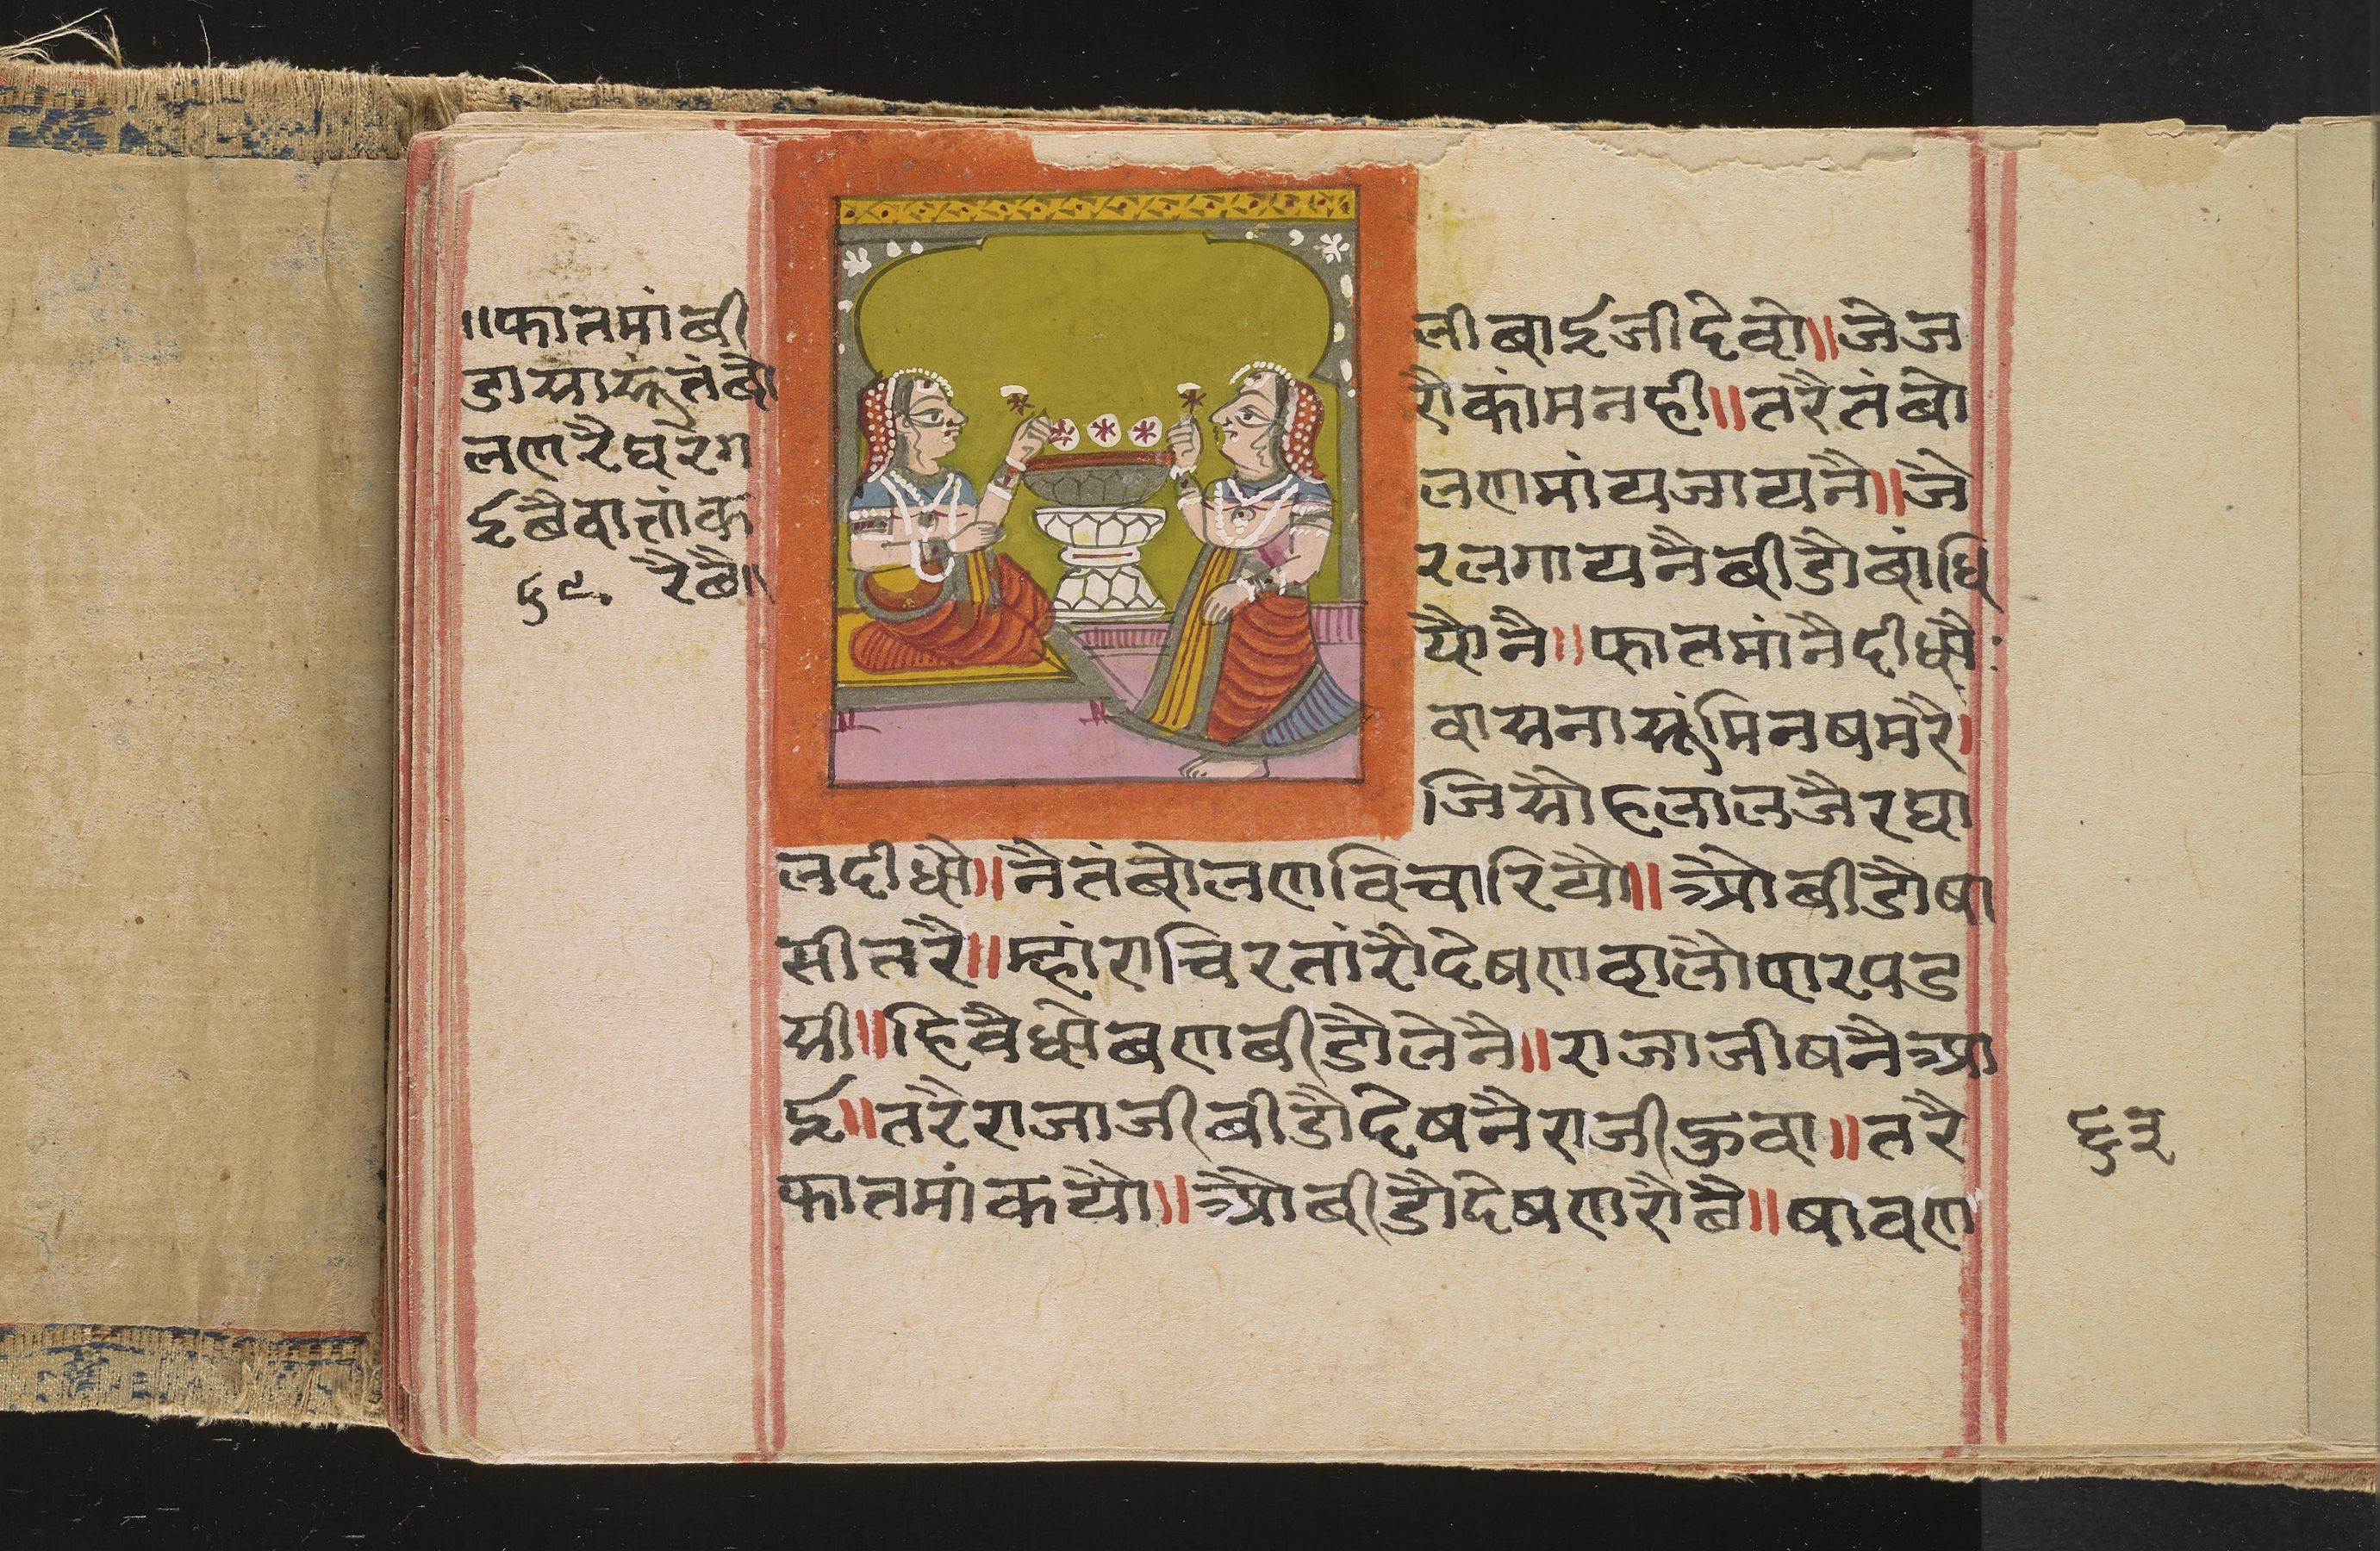 ॥फातमांबी
डासारूतंबो
लणरैघरेग
ईबैवात्तांक
रैबै॥
६९
लीबाईजीदेवो॥जेज
रौकांमनही॥तरैतंबो
लणमांयजायनै॥जै
रलगायनैबीडौबांधि
यौनै॥फातमांनैदीधौ:
वासनासूंमिनषमरै।
जिसौहलालजैरघा
लदीधौ॥नैतंबोलणविचारियौ॥औबीडौषा
सीतरै॥म्हांराचिरतांरौदेषणवालौपारपड
सी॥हिवैधोबणबीडौलेनै॥राजाजीषनैआ
ई॥तरैराजाजीबीडौदेषनैराजीहुवा॥तरै
फातमांकयौ॥औबीडौदेषणरौबै॥षावण
६३